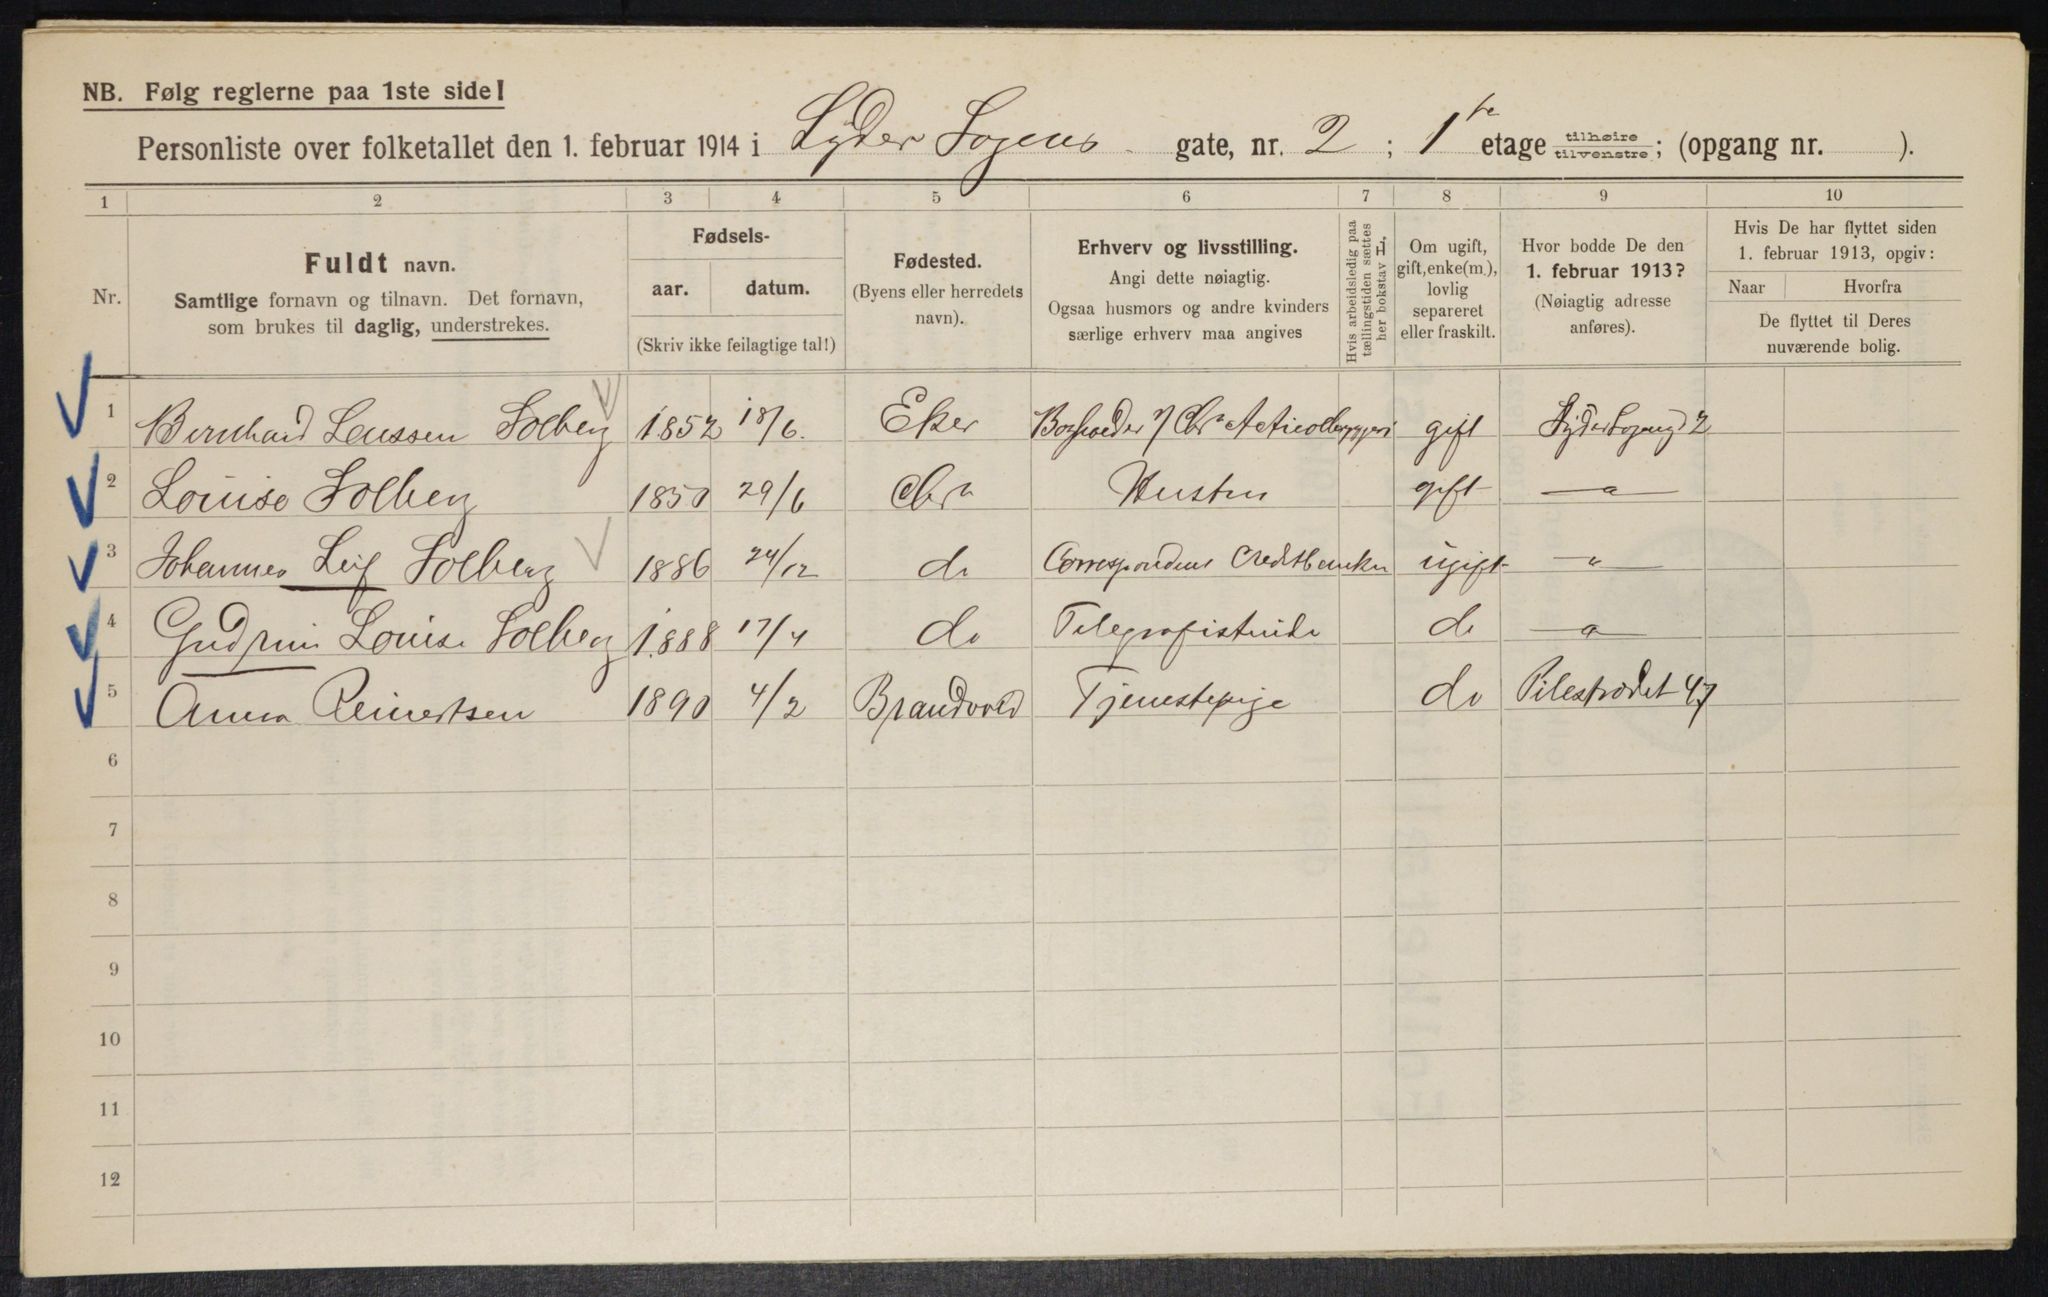 NB. Følg reglerne paa 1ste side!
Personliste over folketallet den 1. februar 1914 i Lyder Sagens gate, nr. 2 ; 1ste etage tilhøire tilvenstre ; (opgang nr. ).
1 2 3 4 5 6 7 8 9 10
Nr.
Fuldt navn.
Samtlige fornavn og tilnavn. Det fornavn,
som brukes til daglig, understrekes.
Fødsels-
aar. datum.
(Skriv ikke feilagtige tal!)
Fødested.
(Byens eller herredets
navn).
Erhverv og livsstilling.
Angi dette nøiagtig.
Ogsaa husmors og andre kvinders
særlige erhverv maa angives
Hvis arbeidsledig paa
tællingstiden sættes
her bokstav L.
Om ugift,
gift, enke(m.),
lovlig
separeret
eller fraskilt.
Hvor bodde De den
1. februar 1913?
(Nøiagtig adresse
anføres).
Hvis De har flyttet siden
1. februar 1913, opgiv:
Naar Hvorfra
De flyttet til Deres
nuværende bolig.
1 Bernhard Solberg 1852 18/6. Eker gift 2
2 Louise Solberg 1850 29/6 Chra Hustru gift — " —
3 Johannes Leif Solberg 1886 24/12 do Correspondent Creditbanken ugift — " —
4 Gudrun Louise Solberg 1888 17/4 do Telegrafistinde do — " —
5 Anna Reinertsen 1890 4/2 Brandvold Tjenestepige do Pilestrædet 47
6
7
8
9
10
11
12